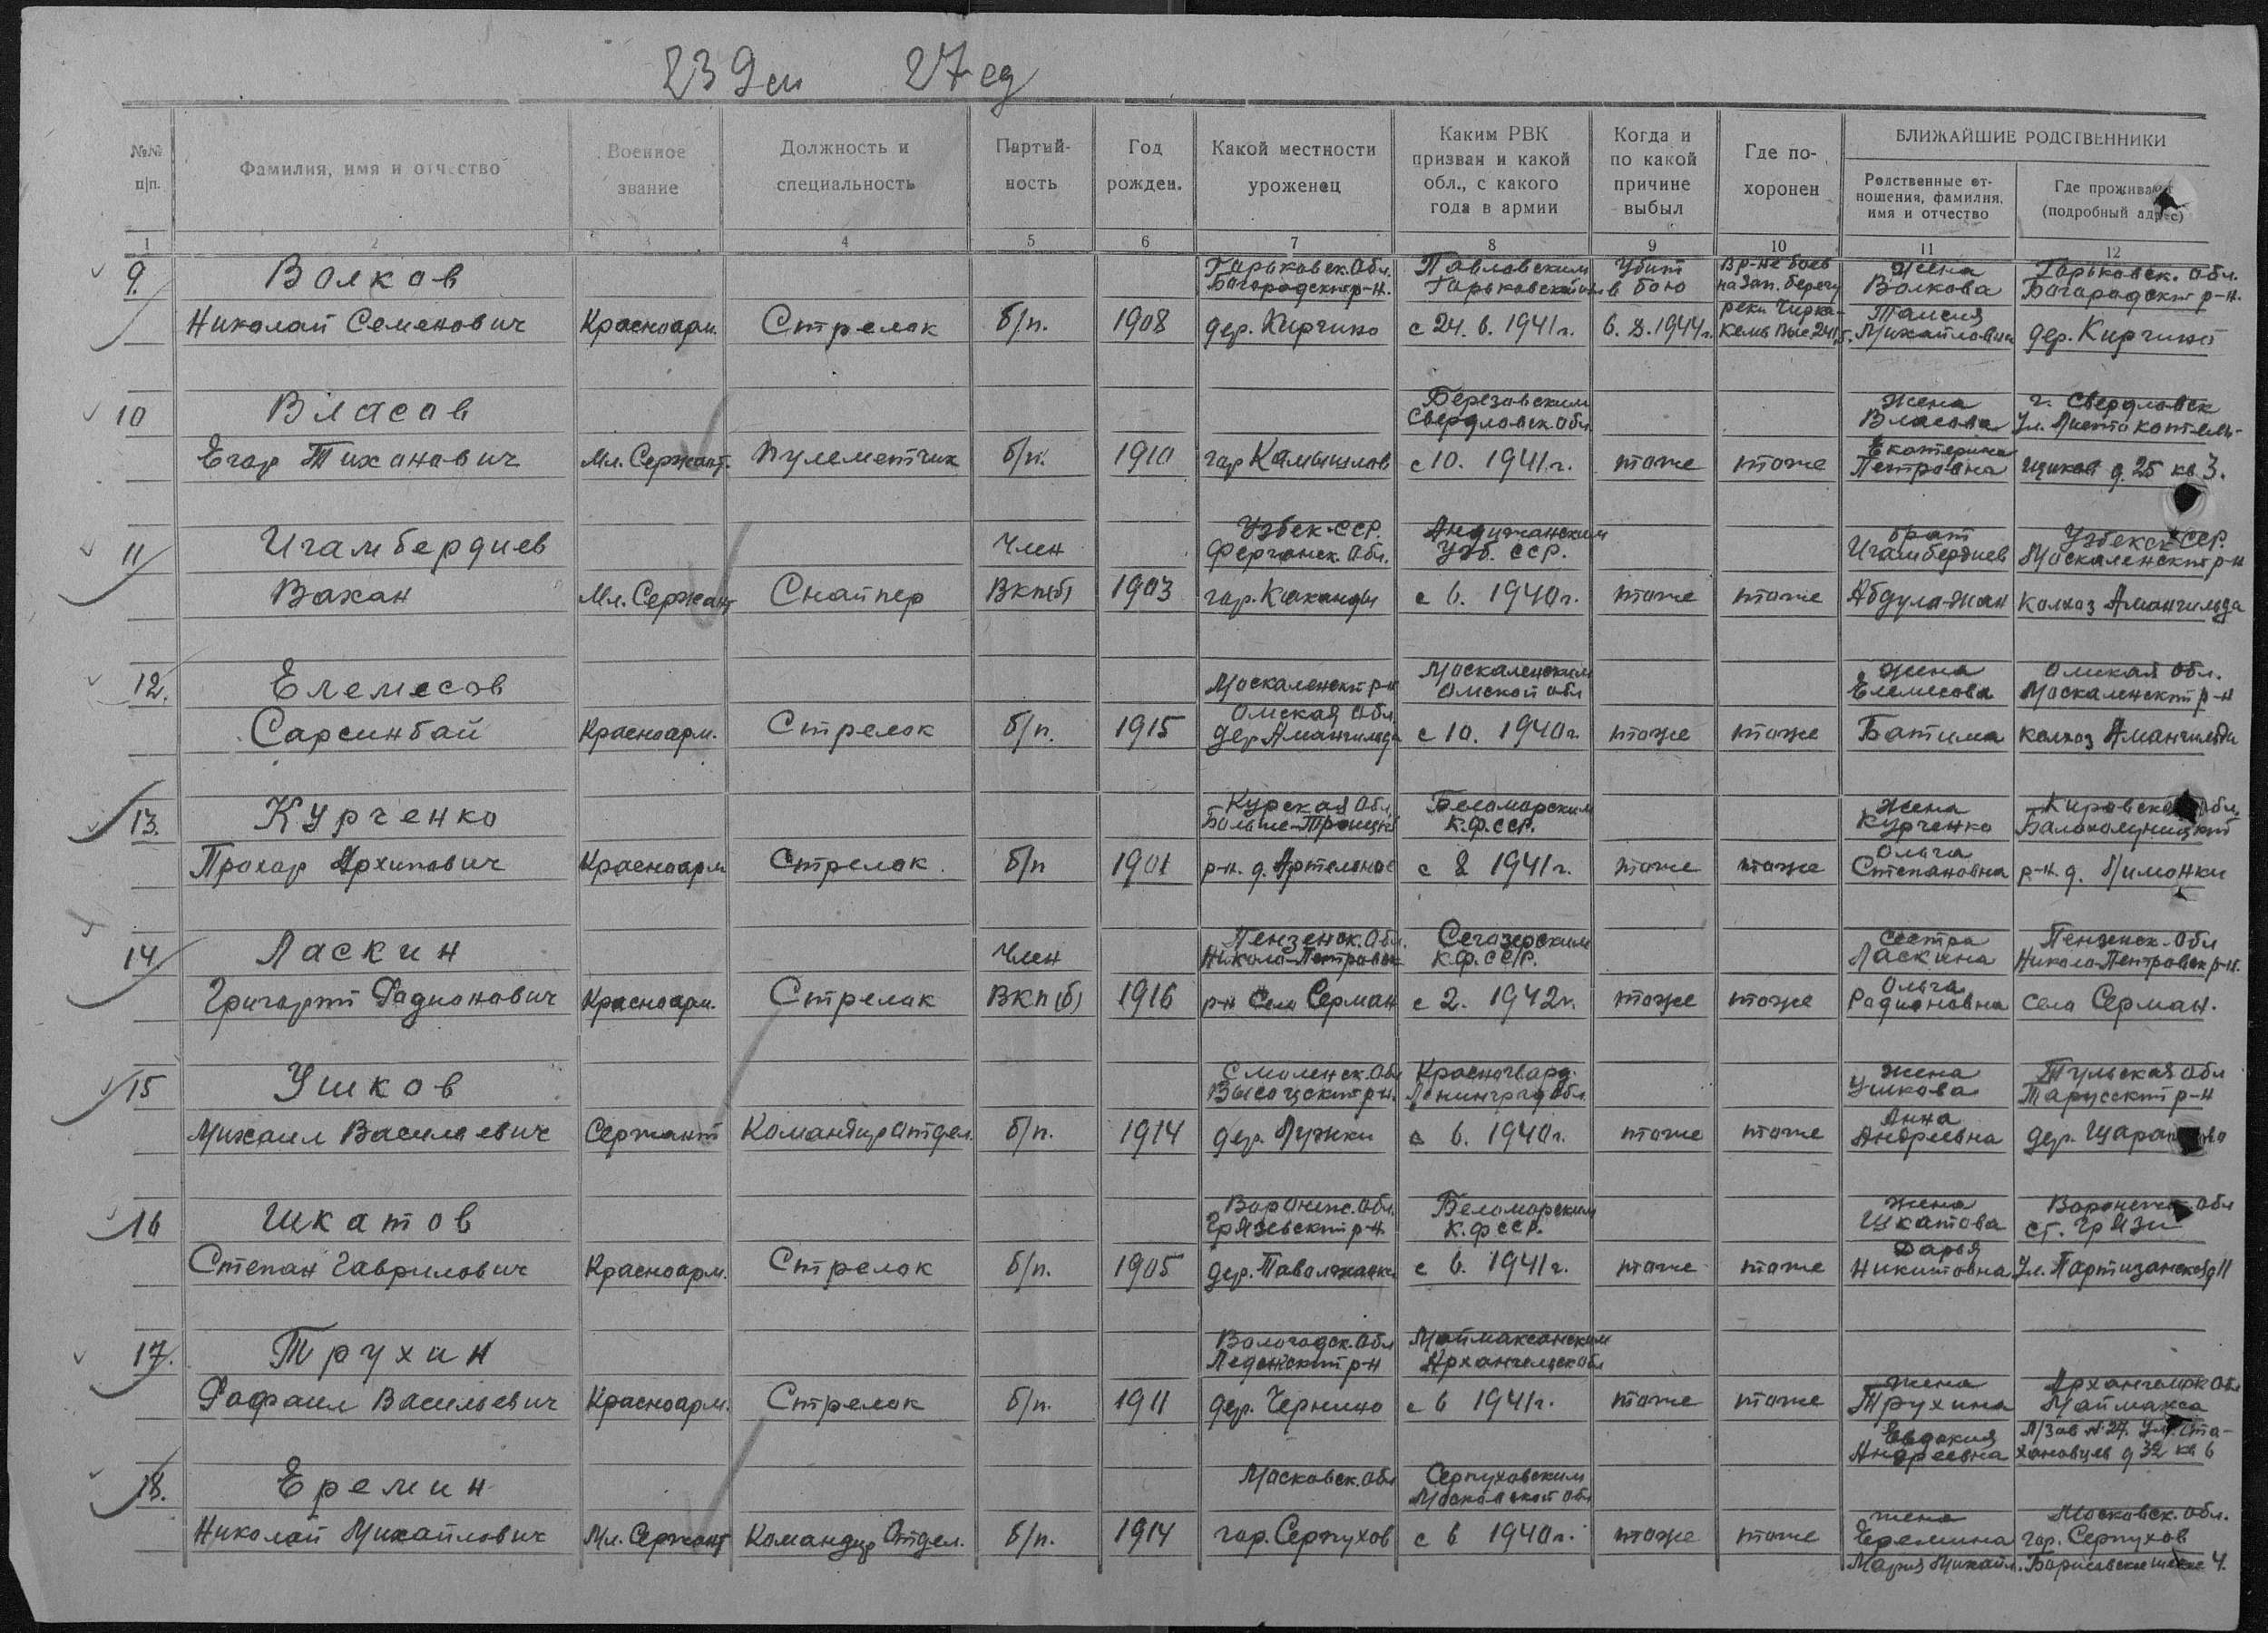 239сп 27сд
№№ п/п.
Фамилия, имя и отчество
Военное звание
Должность и специальность
Партий-ность
Год рожден.
Какой местности уроженец
Каким РВК призван и какой обл., с какого года в армии
Когда и по какой причине выбыл
Где по-хоронен
БЛИЖАЙШИЕ РОДСТВЕННИКИ
Родственные от-ношения, фамилия, имя и отчество
Где проживают (подробный адрес)
1 2 3 4 5 6 7 8 9 10 11 12
9. Волков Горьковск. Обл. Павловским Убит В р-не боев Жена Горьковск. Обл.
Богородский р-н. Горьковской в бою на Зап. берегу Волкова Богородский р-н.
Николай Семенович Красноарм. Стрелок б/п. 1908 дер. Кирчино с 24. 6. 1941г. 6. 8. 1944г. реки Чирка-кемь Таисия Михайловна дер. Кирчино
10 Власов Березовским Жена г. Свердловск
Свердловск. Обл. Власова Ул.
Егор Тихонович Мл. Сержант. пулеметчик б/п. 1910 гор Камышлов с 10. 1941г. тоже тоже Екатерина Петровна д. 25 кв 3.
11 Игамбердиев Узбек. ССР. Андижанским брат Узбекск ССР.
Член Ферганск. Обл. Узб. ССР. Игамбердиев Москаленский р-н
Вахан Мл. Сержант Снайпер ВКП(б) 1903 гор. Коканды с 6. 1940г. тоже тоже Абдула-жан колхоз Амангильда
12. Елемесов Москаленский р-н Москаленским Жена Омская Обл.
Омская Обл Омской обл Елемесова Москаленский р-н
Сарсинбай Красноарм. Стрелок б/п. 1915 дер Амангильда с 10. 1940г тоже тоже Батима колхоз Амангильди
13. Курченко Курская Обл. Беломорским Жена Кировская Обл.
Больше-Троицк К.Ф.ССР. Курченко
Прохор Архипович Красноарм Стрелок. б/п 1901 р-н. д. Артельное с 8 1941г. тоже тоже Ольга Степановна р-н. д. Лимонки
14 Ласкин Пензенск. Обл. Сегозерским сестра Пензенск. Обл
Член Николо-Петровск К.Ф. ССР. Ласкина Николо-Петровск р-н.
Григорий Радионович Красноарм. Стрелок ВКП(б) 1916 р-н Село Серман с 2. 1942г. тоже тоже Ольга Радионовна село Серман.
15 Ушков Смоленск. Обл Красногвард. Жена Тульская Обл
Высоцский р-н. Ленинград Обл. Ушкова Тарусский р-н
Михаил Васильевич Сержант Командир отдел. б/п. 1914 дер. Лужки с 6. 1940г. тоже тоже Анна Андреевна дер.
16 Шкатов Воронеж. Обл. Беломорским Жена Воронежск. Обл
Грязевский р-н. К.Ф ССР. Шкатова ст. Грязи
Степан Гаврилович Красноарм. Стрелок б/п. 1905 дер. с 6. 1941г. тоже тоже Дарья Никитовна Ул. Партизанская д 11
17. Трухин Вологодск. Обл Маймаксанским
Леденский р-н Архангельск Обл
Рафаил Васильевич Красноарм. Стрелок б/п. 1911 дер. Чернино с 6 1941г. тоже тоже Жена Трухина Архангельск Обл Маймакса
Евдокия Андреевна Л/Зав №27. Ул. Ста-хановцев д 32 кв 6
18. Еремин Московск. Обл Серпуховским
Московской Обл
Николай Михайлович Мл. Сержант Командир Отдел. б/п. 1914 гор. Серпухов с 6 1940г. тоже тоже жена Еремина Московск. Обл. гор. Серпухов
Мария Михайл. Борисовское шоссе 4.